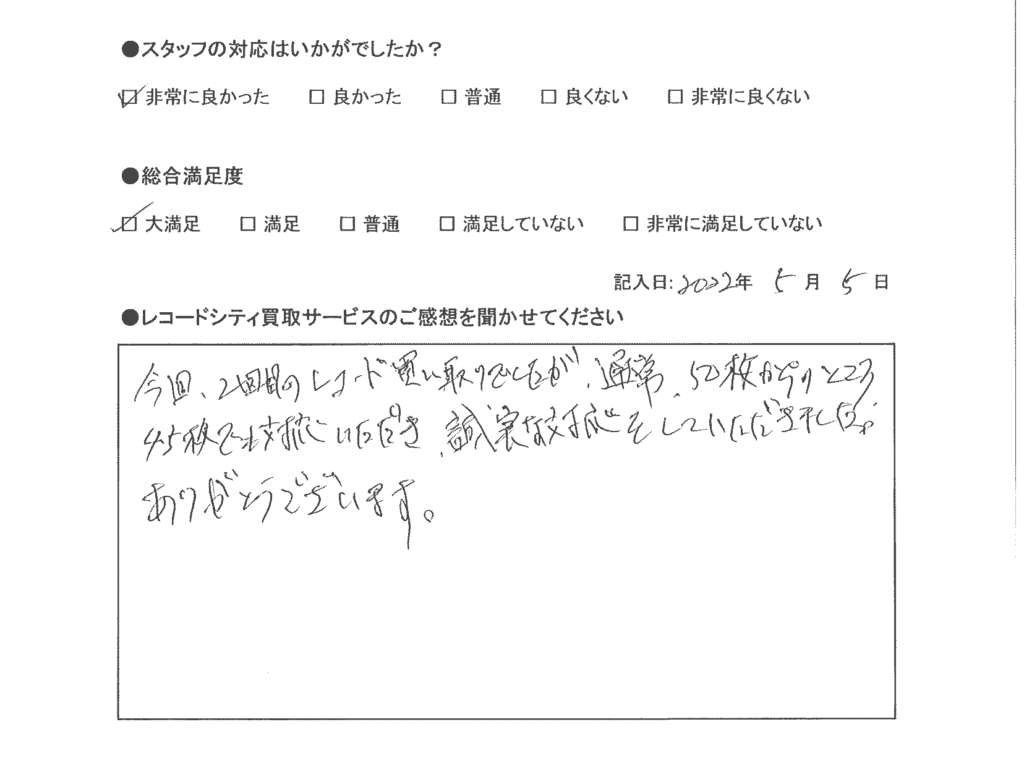 ●スタッフの対応はいかがでしたか？
☑ 非常に良かった □ 良かった □ 普通 □ 良くない □ 非常に良くない
●総合満足度
☑ 大満足 □ 満足 □ 普通 □ 満足していない □ 非常に満足していない
記入日:2022年 5月 5日
●レコードシティ買取サービスのご感想を聞かせてください
今回、2回目のレコード買い取りでしたが、通常、50枚からのところ
45枚でも対応いただき、誠実な対応をしていただきました。
ありがとうございます。